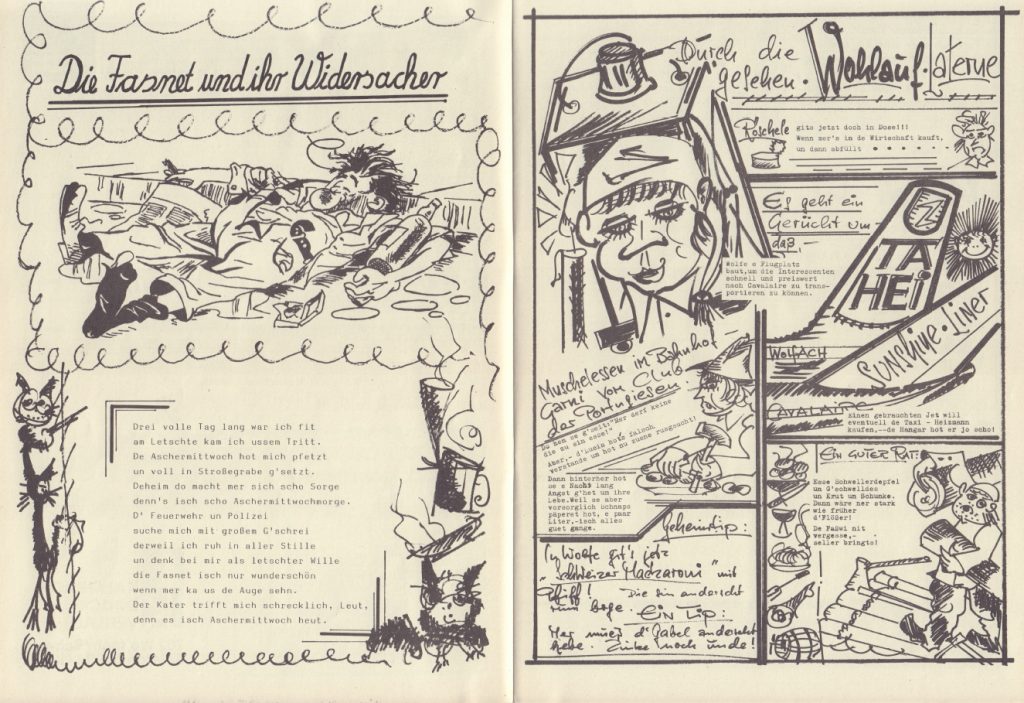 Die Fasnet und ihr Widersacher
Drei volle Tag lang war ich fit
am Letschte kam ich ussem Tritt.
De Aschermittwoch hot mich pfetzt
un voll in Stroßegrabe g'setzt.
Deheim do macht mer sich scho Sorge
denn's isch scho Aschermittwochmorge.
D' Feuerwehr un Polizei
suche mich mit großem G'schrei
derweil ich ruh in aller Stille
un denk bei mir als letschter Wille
die Fasnet isch nur wunderschön
wenn mer ka us de Auge sehn.
Der Kater trifft mich schrecklich, Leut,
denn es isch Aschermittwoch heut.
Durch die Wohlauf-laterne
gesehen.
Röschele
gits jetzt doch in Dose!!!
Wenn mer's in de Wirtschaft kauft,
un dann abfüllt
Es geht ein
Gerücht um
daß,-
Wolfe e Flugplatz
baut,um die Interessenten
schnell und preiswert
nach Cavalaire zu trans-
portieren zu können.
TA
HEi
SUNSHINE-LINER
WOLFACH
CAVALAIRE
Einen gebrauchten Jet will
eventuell de Taxi - Heizmann
kaufen,--de Hangar hot er jo scho!
Muschelessen im Bahnhof
Garni vom Club
der Portugiesen:
Du hen se g'seit:"Mer derf keine
die zu sin esse!"
Aber,- d'Luzin hots falsch
verstande un hot nu zuene rusgsucht!
Dann hinterher hot
se e Nacht lang
Angst g'het um ihre
Lebe.Weil se aber
vorsorglich Schnaps
päperet hot, e paar
Liter,-isch alles
guet gange.
Geheimtip:
In Wolfe git's jetz
"Schweizer Maccaroni" mit
Pfiff! Die sin anderscht
rum boge. Ein Tip:
Mer muess d'Gabel anderscht
hebe. Zinke noch unde!
EIN GUTER RAT:
Esse Schwellerdepfel
un G'schwelldes
un Krut un Schunke.
Dann wäre ner stark
wie früher
d'Flößer!
De Faßwi nit
vergesse,-
seller bringts!